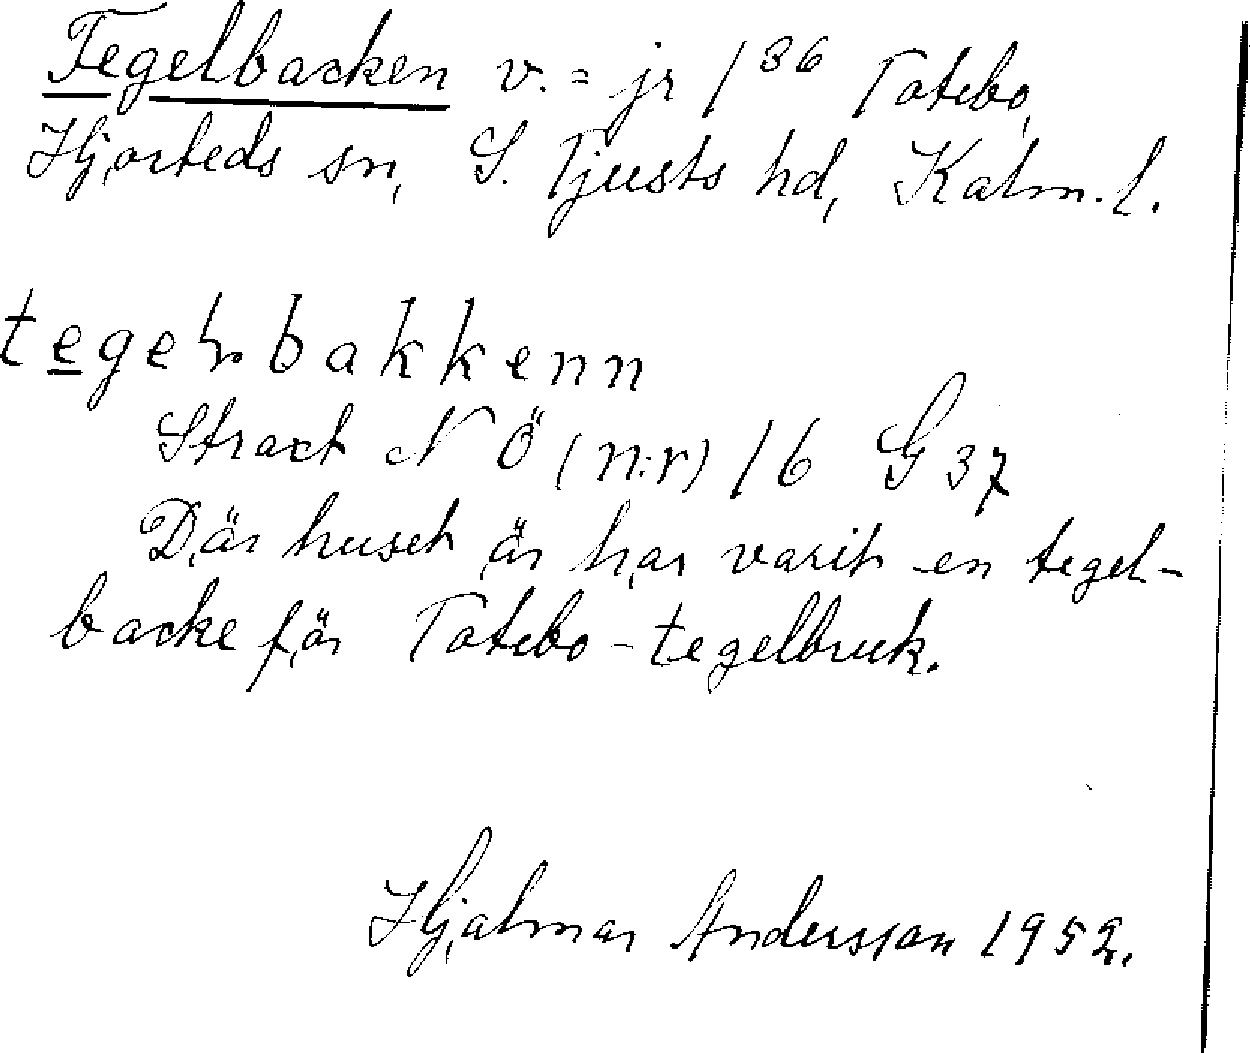 Tegelbacken v. = jr 1³⁶ Totebo,
Hjorteds sn, S. Tjusts hd, Kalm. l.
tegel-bakkenn
Straxt N Ö (n:r) 16 G 37
Där huset är har varit en tegel-
backe för Totebo-tegelbruk.
Hjalmar Andersson 1952.